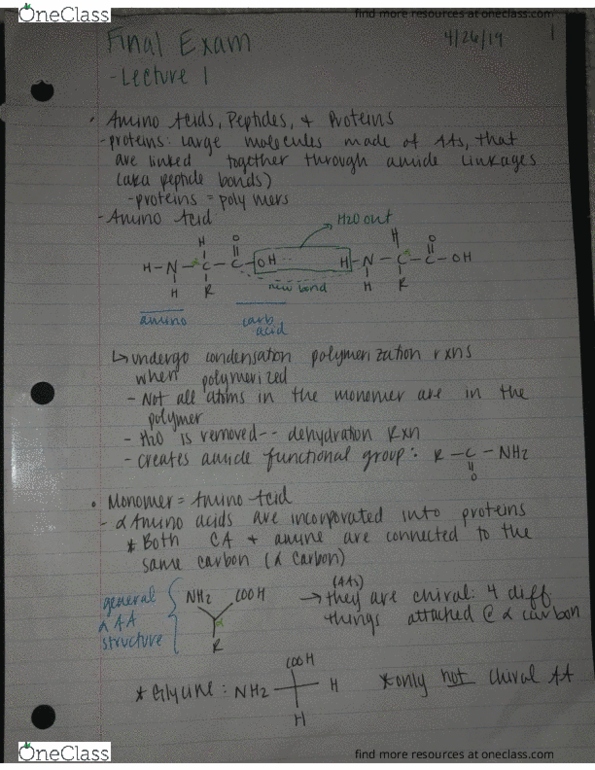 OneClass
find more resources at oneclass.com
Final Exam
4/26/19
1
- Lecture 1
• Amino Acids, Peptides, + Proteins
- proteins: large molecules made of AAs, that
are linked together through amide linkages
(aka peptide bonds)
- proteins = polymers
- Amino Acid
H2O out
H O H H O
H-N-C-C-OH H-N-C-C-OH
H R H R
new bond
amino
carb
acid
↳ undergo condensation polymerization rxns
when polymerized
- Not all atoms in the monomer are in the
polymer
- H2O is removed-- dehydration Rxn
- creates amide functional group: R-C-NH2
O
• Monomer = Amino Acid
- α Amino acids are incorporated into proteins
* Both CA + amine are connected to the
same carbon (α carbon)
general
α AA
structure
NH2 COOH
R
(AAs)
→ they are chiral: 4 diff
things attached @ α carbon
COOH
* Glycine: NH2 H
H
* only not chiral AA
OneClass
find more resources at oneclass.com